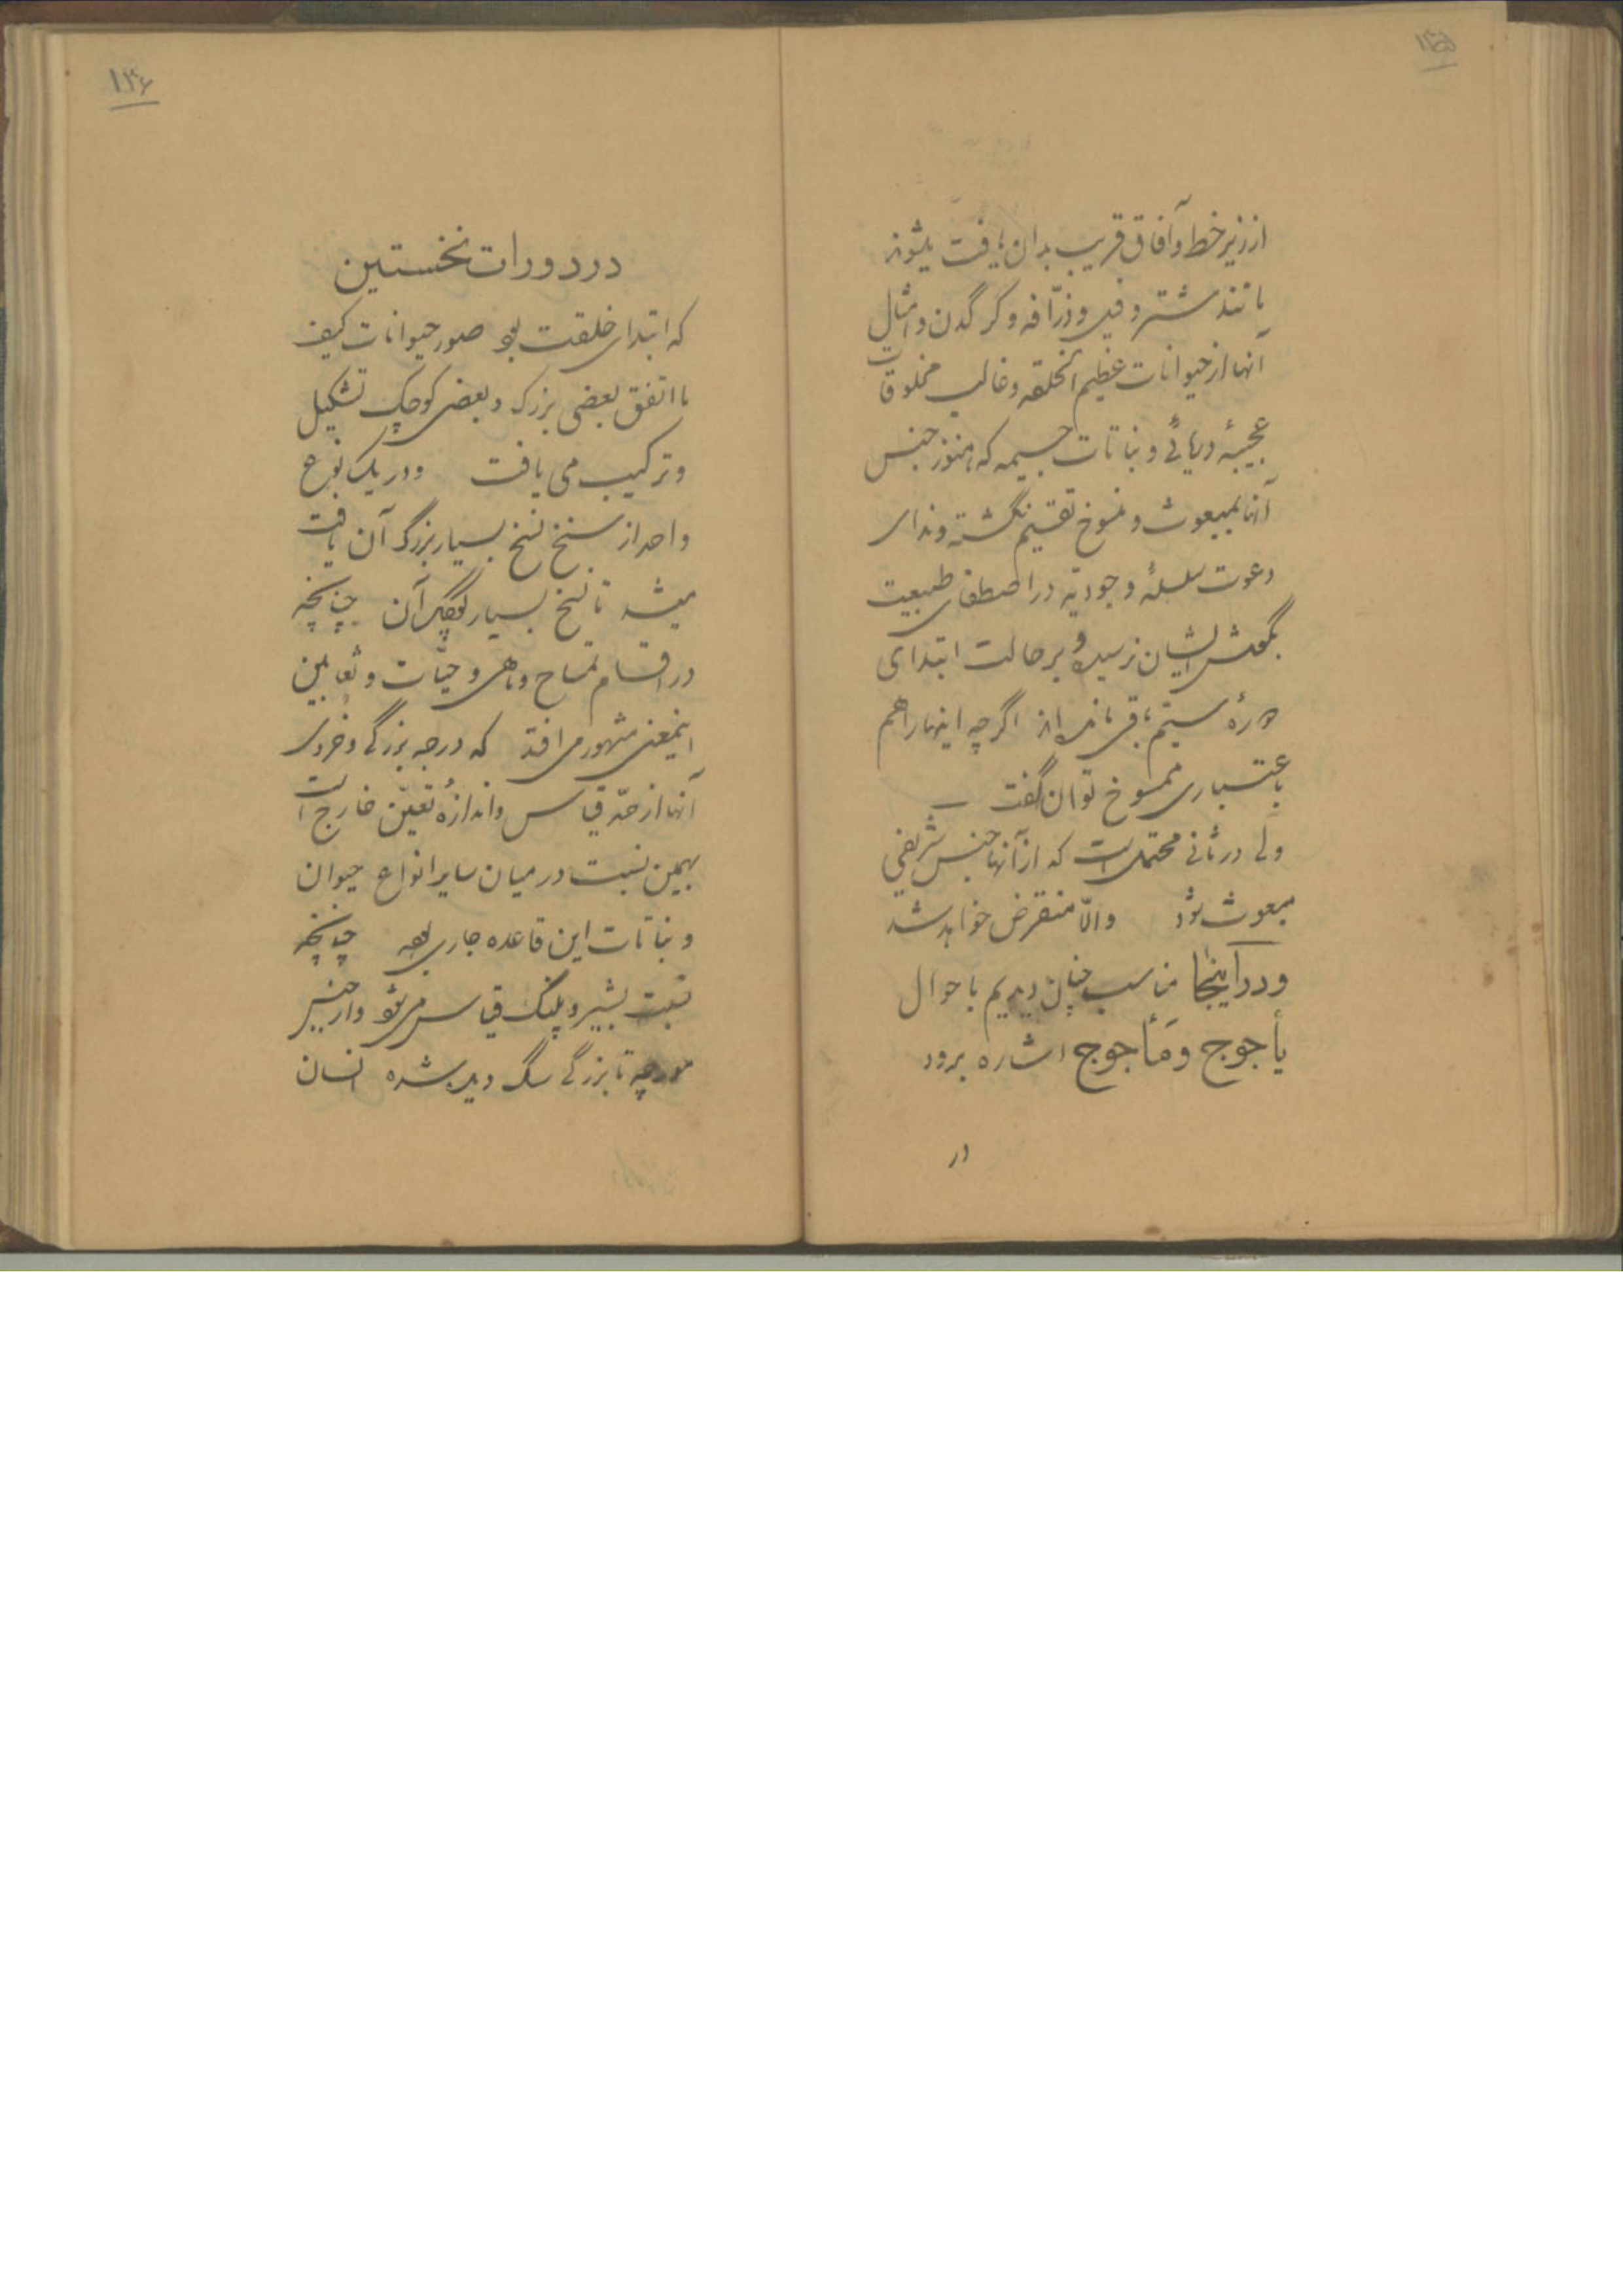 ۱۴۵
از زیر خط و آفاق قریب بدان یافت میشوند
مانند شتر و فیل و زرّافه و کرگدن و امثال
آنها از حیوانات عظیم الخلقه و غالب مخلوقات
عجیبهٔ دریائی و نباتات جسیمه که هنوز جنس
آنها بمبعوث و منسوخ تقسیم نگشته و ندای
دعوت سلسلهٔ وجودیّه در اصطفای طبیعت
بگوش ایشان نرسیده و بر حالت ابتدای
دورهٔ سیّم باقی مانده‌اند اگرچه اینها را هم
باعتباری ممسوخ توان گفت
ولی در ثانی محتمل است که از آنها جنس شریفی
مبعوث شود والّا منقرض خواهد شد
و در اینجا مناسب چنان دیدیم باحوال
یأجوج و مأجوج اشاره برود
در
۱۴۶
در دورات نخستین
که ابتدای خلقت بود صور حیوانات کیف
ما اتفق بعضی بزرک و بعضی کوچک تشکیل
و ترکیب می یافت و در یک نوع
واحد از سنخ بسیار بزرگ آن یافت
میشد تا سنخ بسیار کوچک آن چنانچه
در اقسام تمساح و ماهی و حیّات و ثعابین
اینمعنی مشهور می افتد که درجه بزرگی و خردی
آنها از حدّ قیاس و اندازهٔ تعیّن خارج است
بهمین نسبت در میان سایر انواع حیوان
و نباتات این قاعده جاری بوده چنانچه
نسبت بشیر و پلنک قیاس می شود و از جنس
مورچه تا بزرگی سگ دیده شده انسان